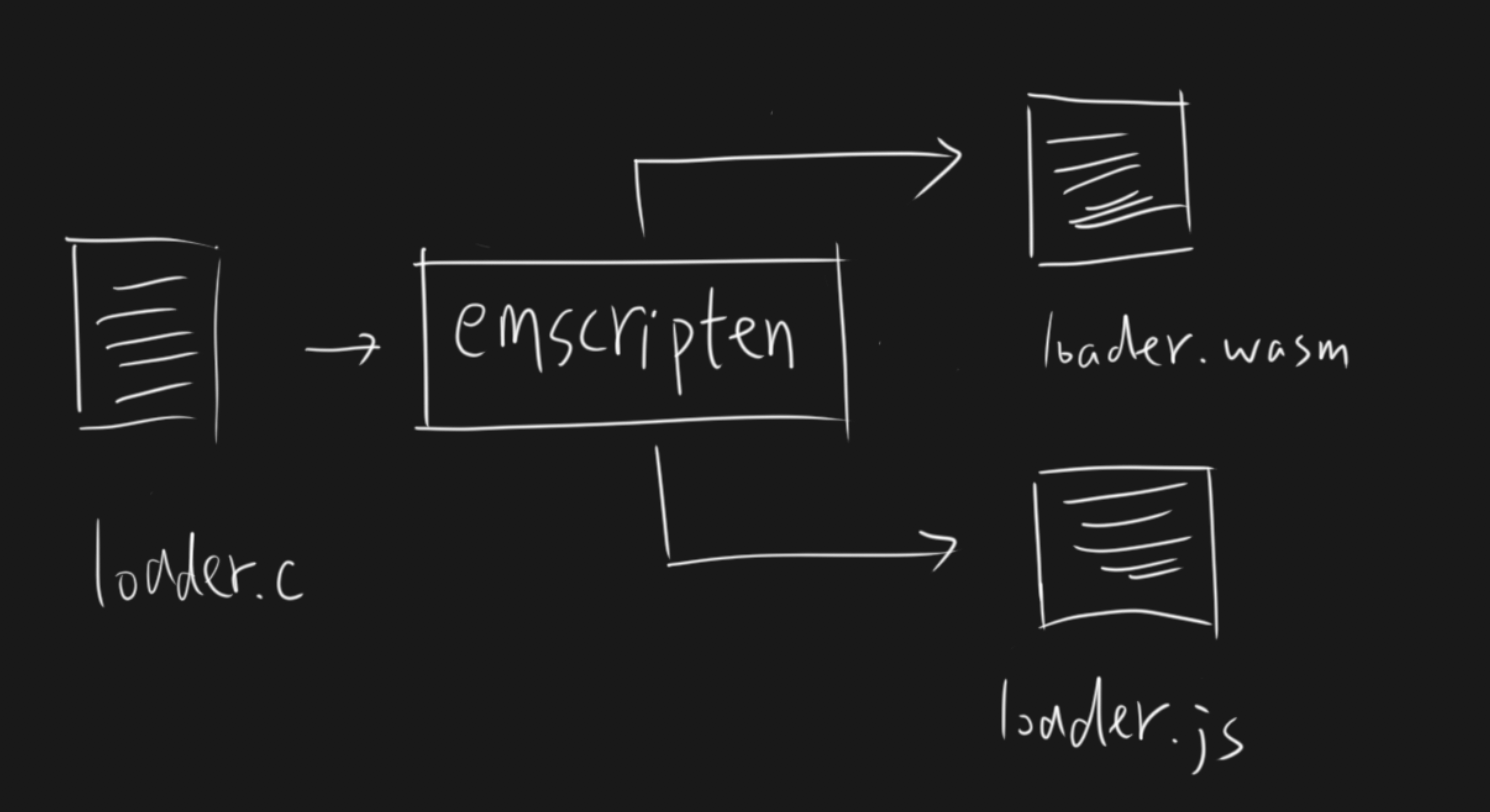 loader.c
emscripten
loader.wasm
loader.js